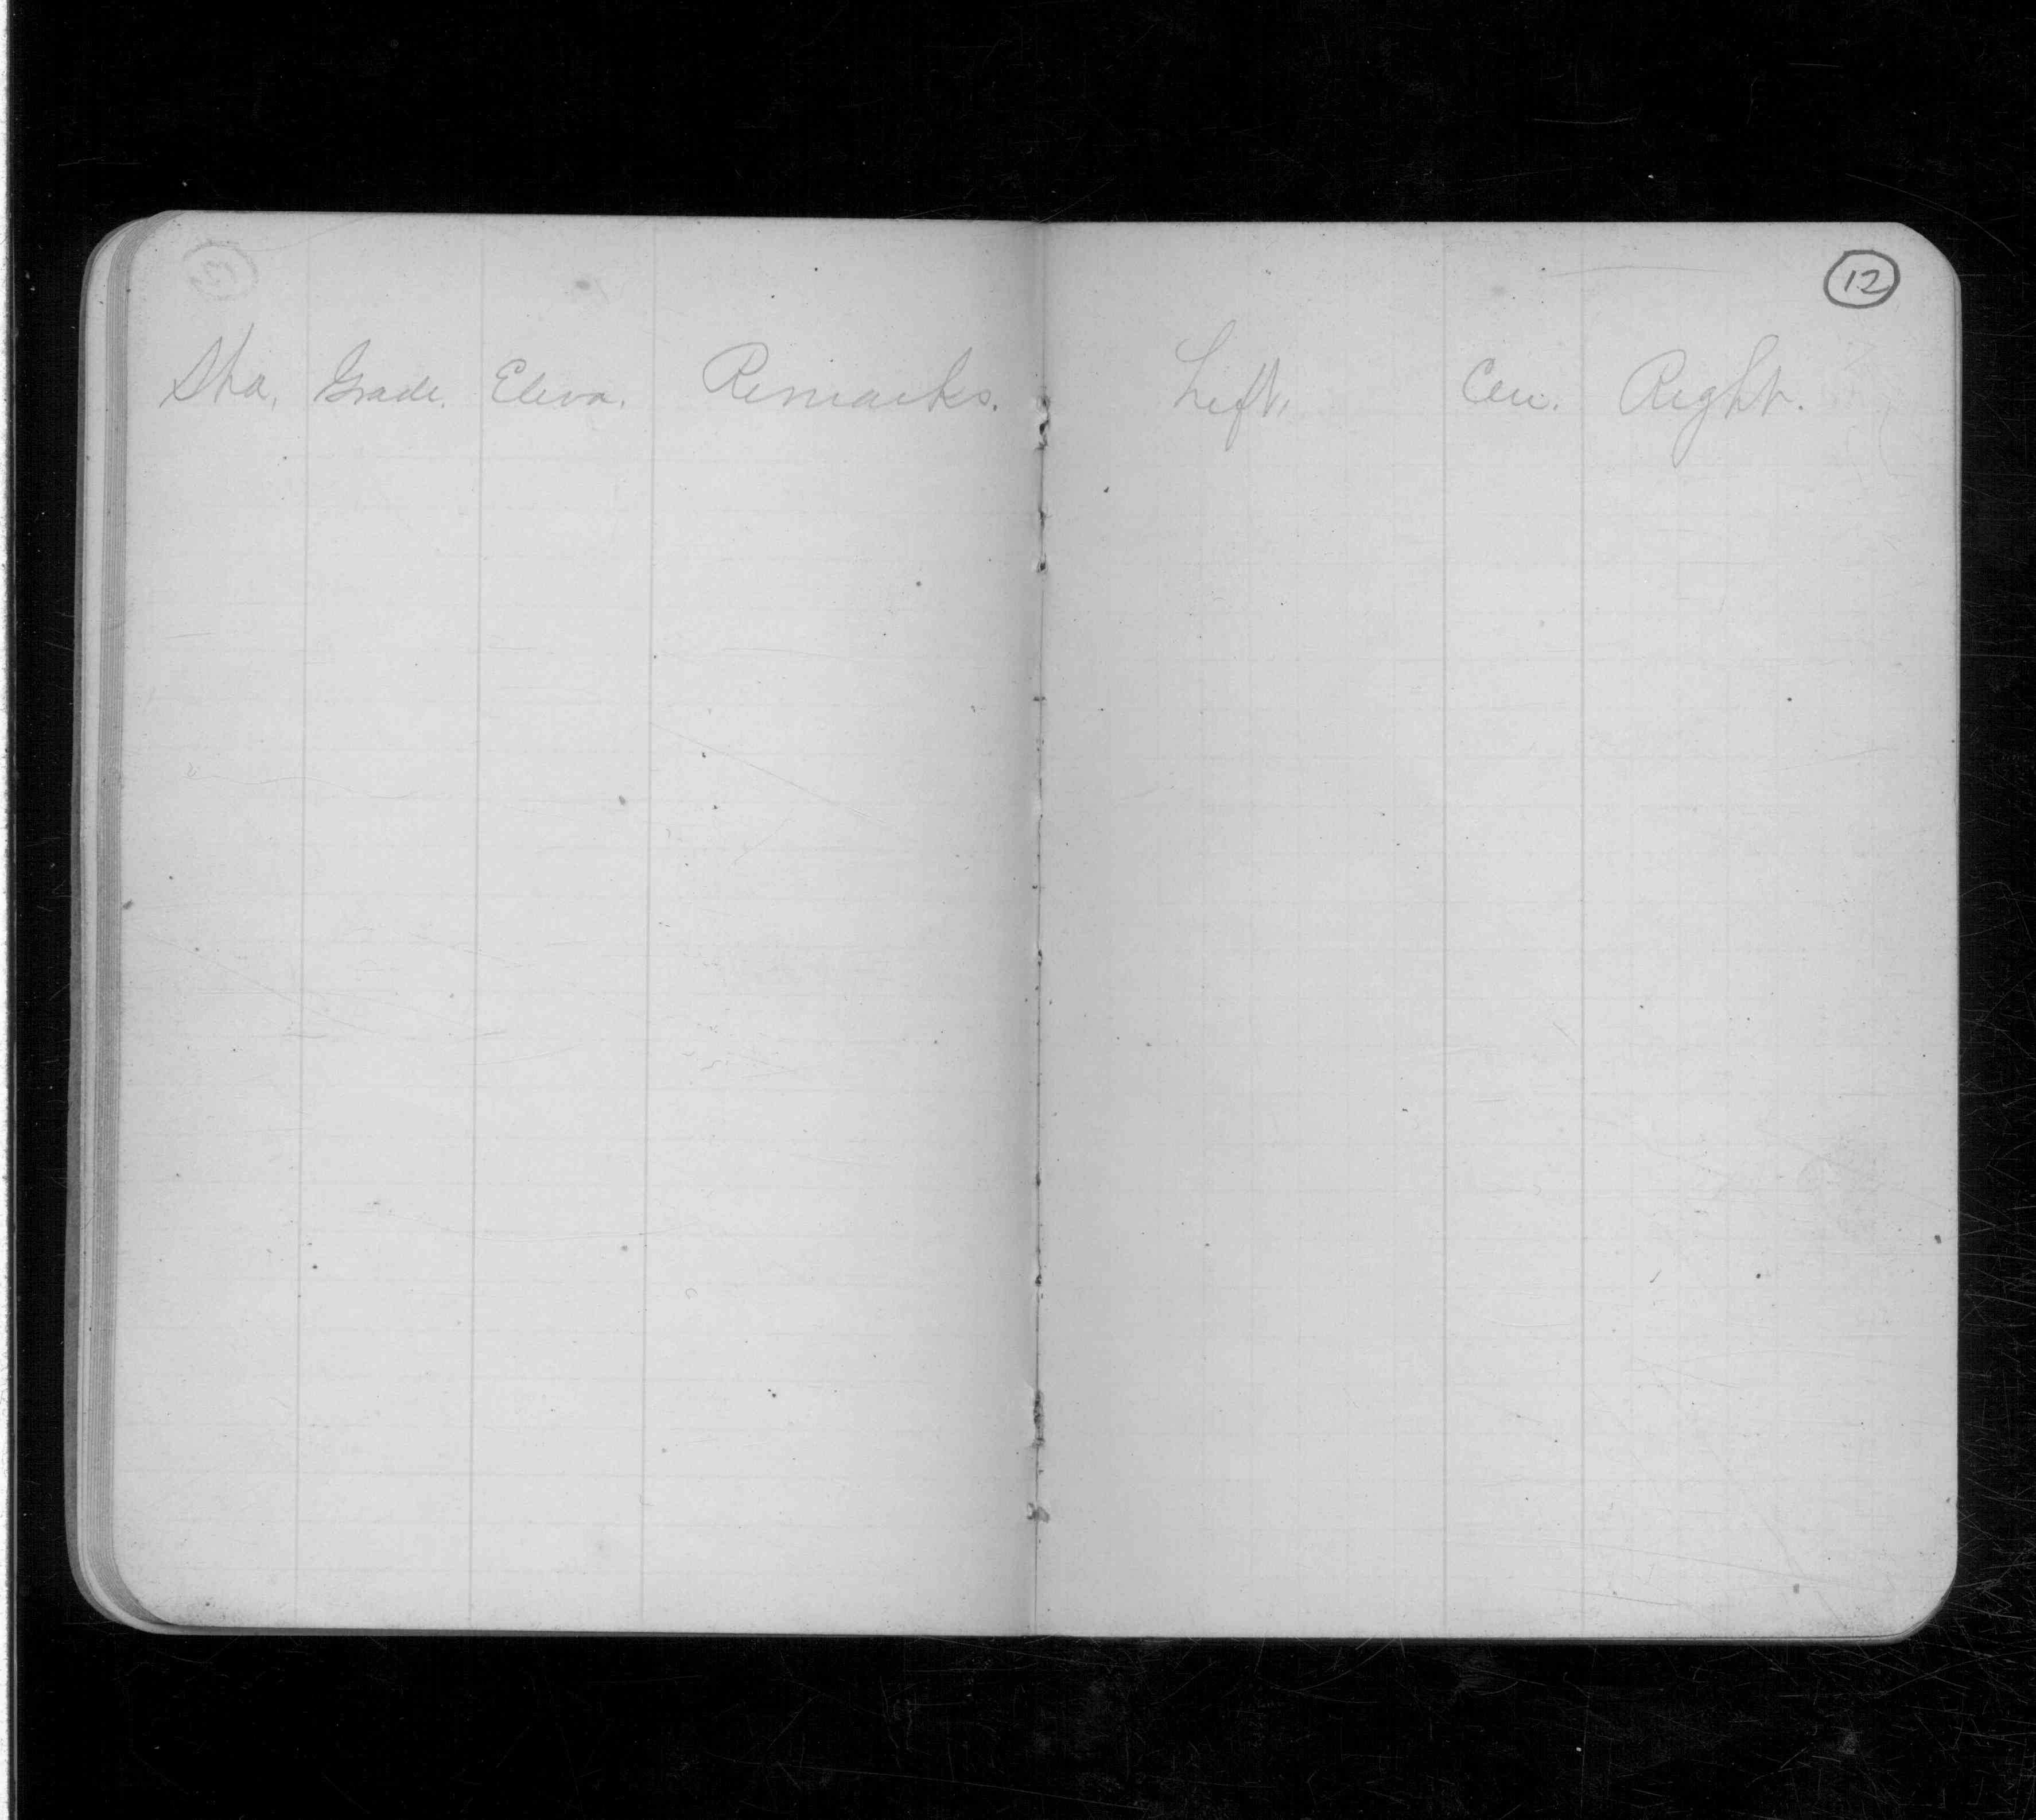 12
Sta. Grade. Eleva. Remarks. Left. Cen. Right.